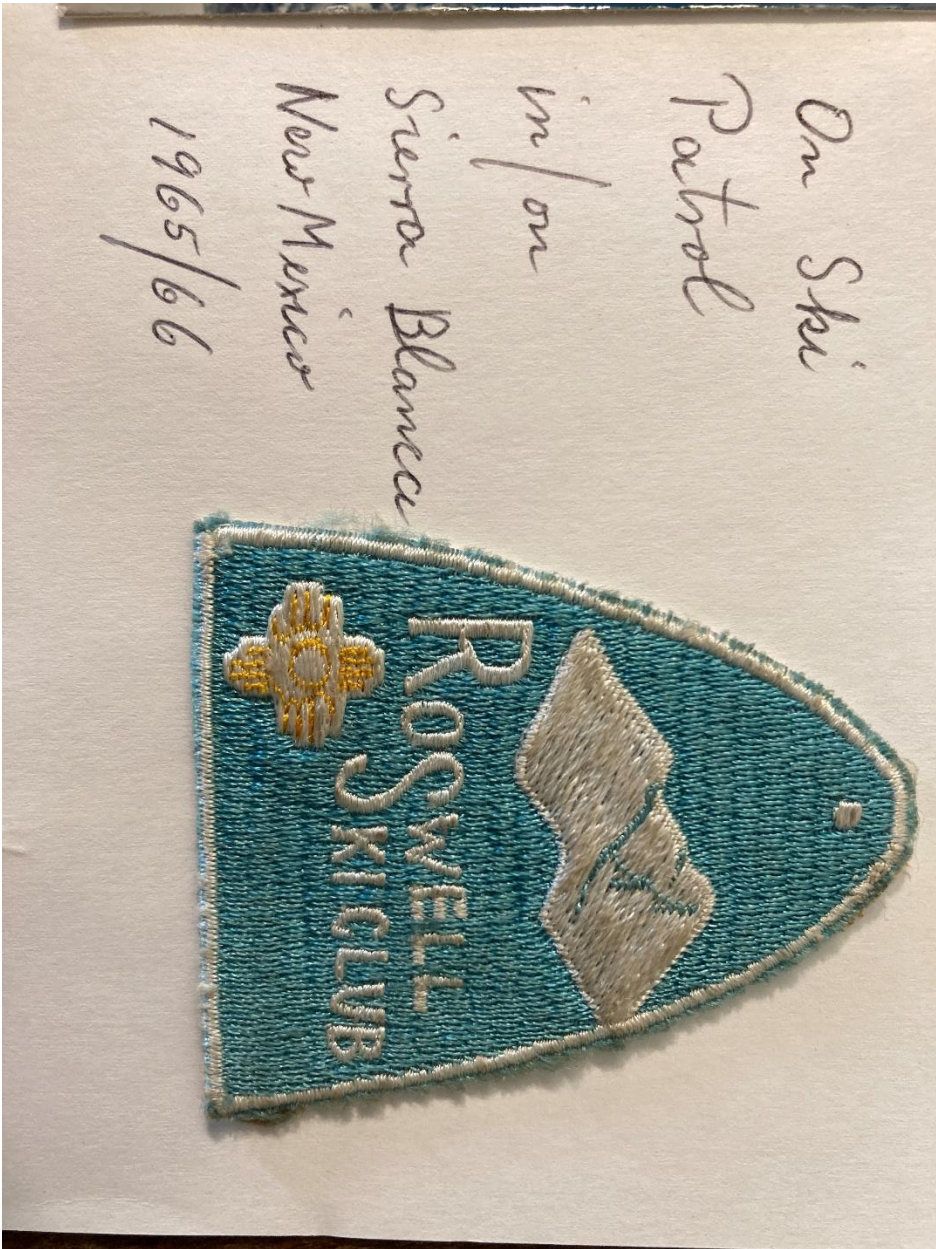 On Ski
Patrol
in/on
Sierra Blanca
New Mexico
1965/66
ROSWELL
SKI CLUB